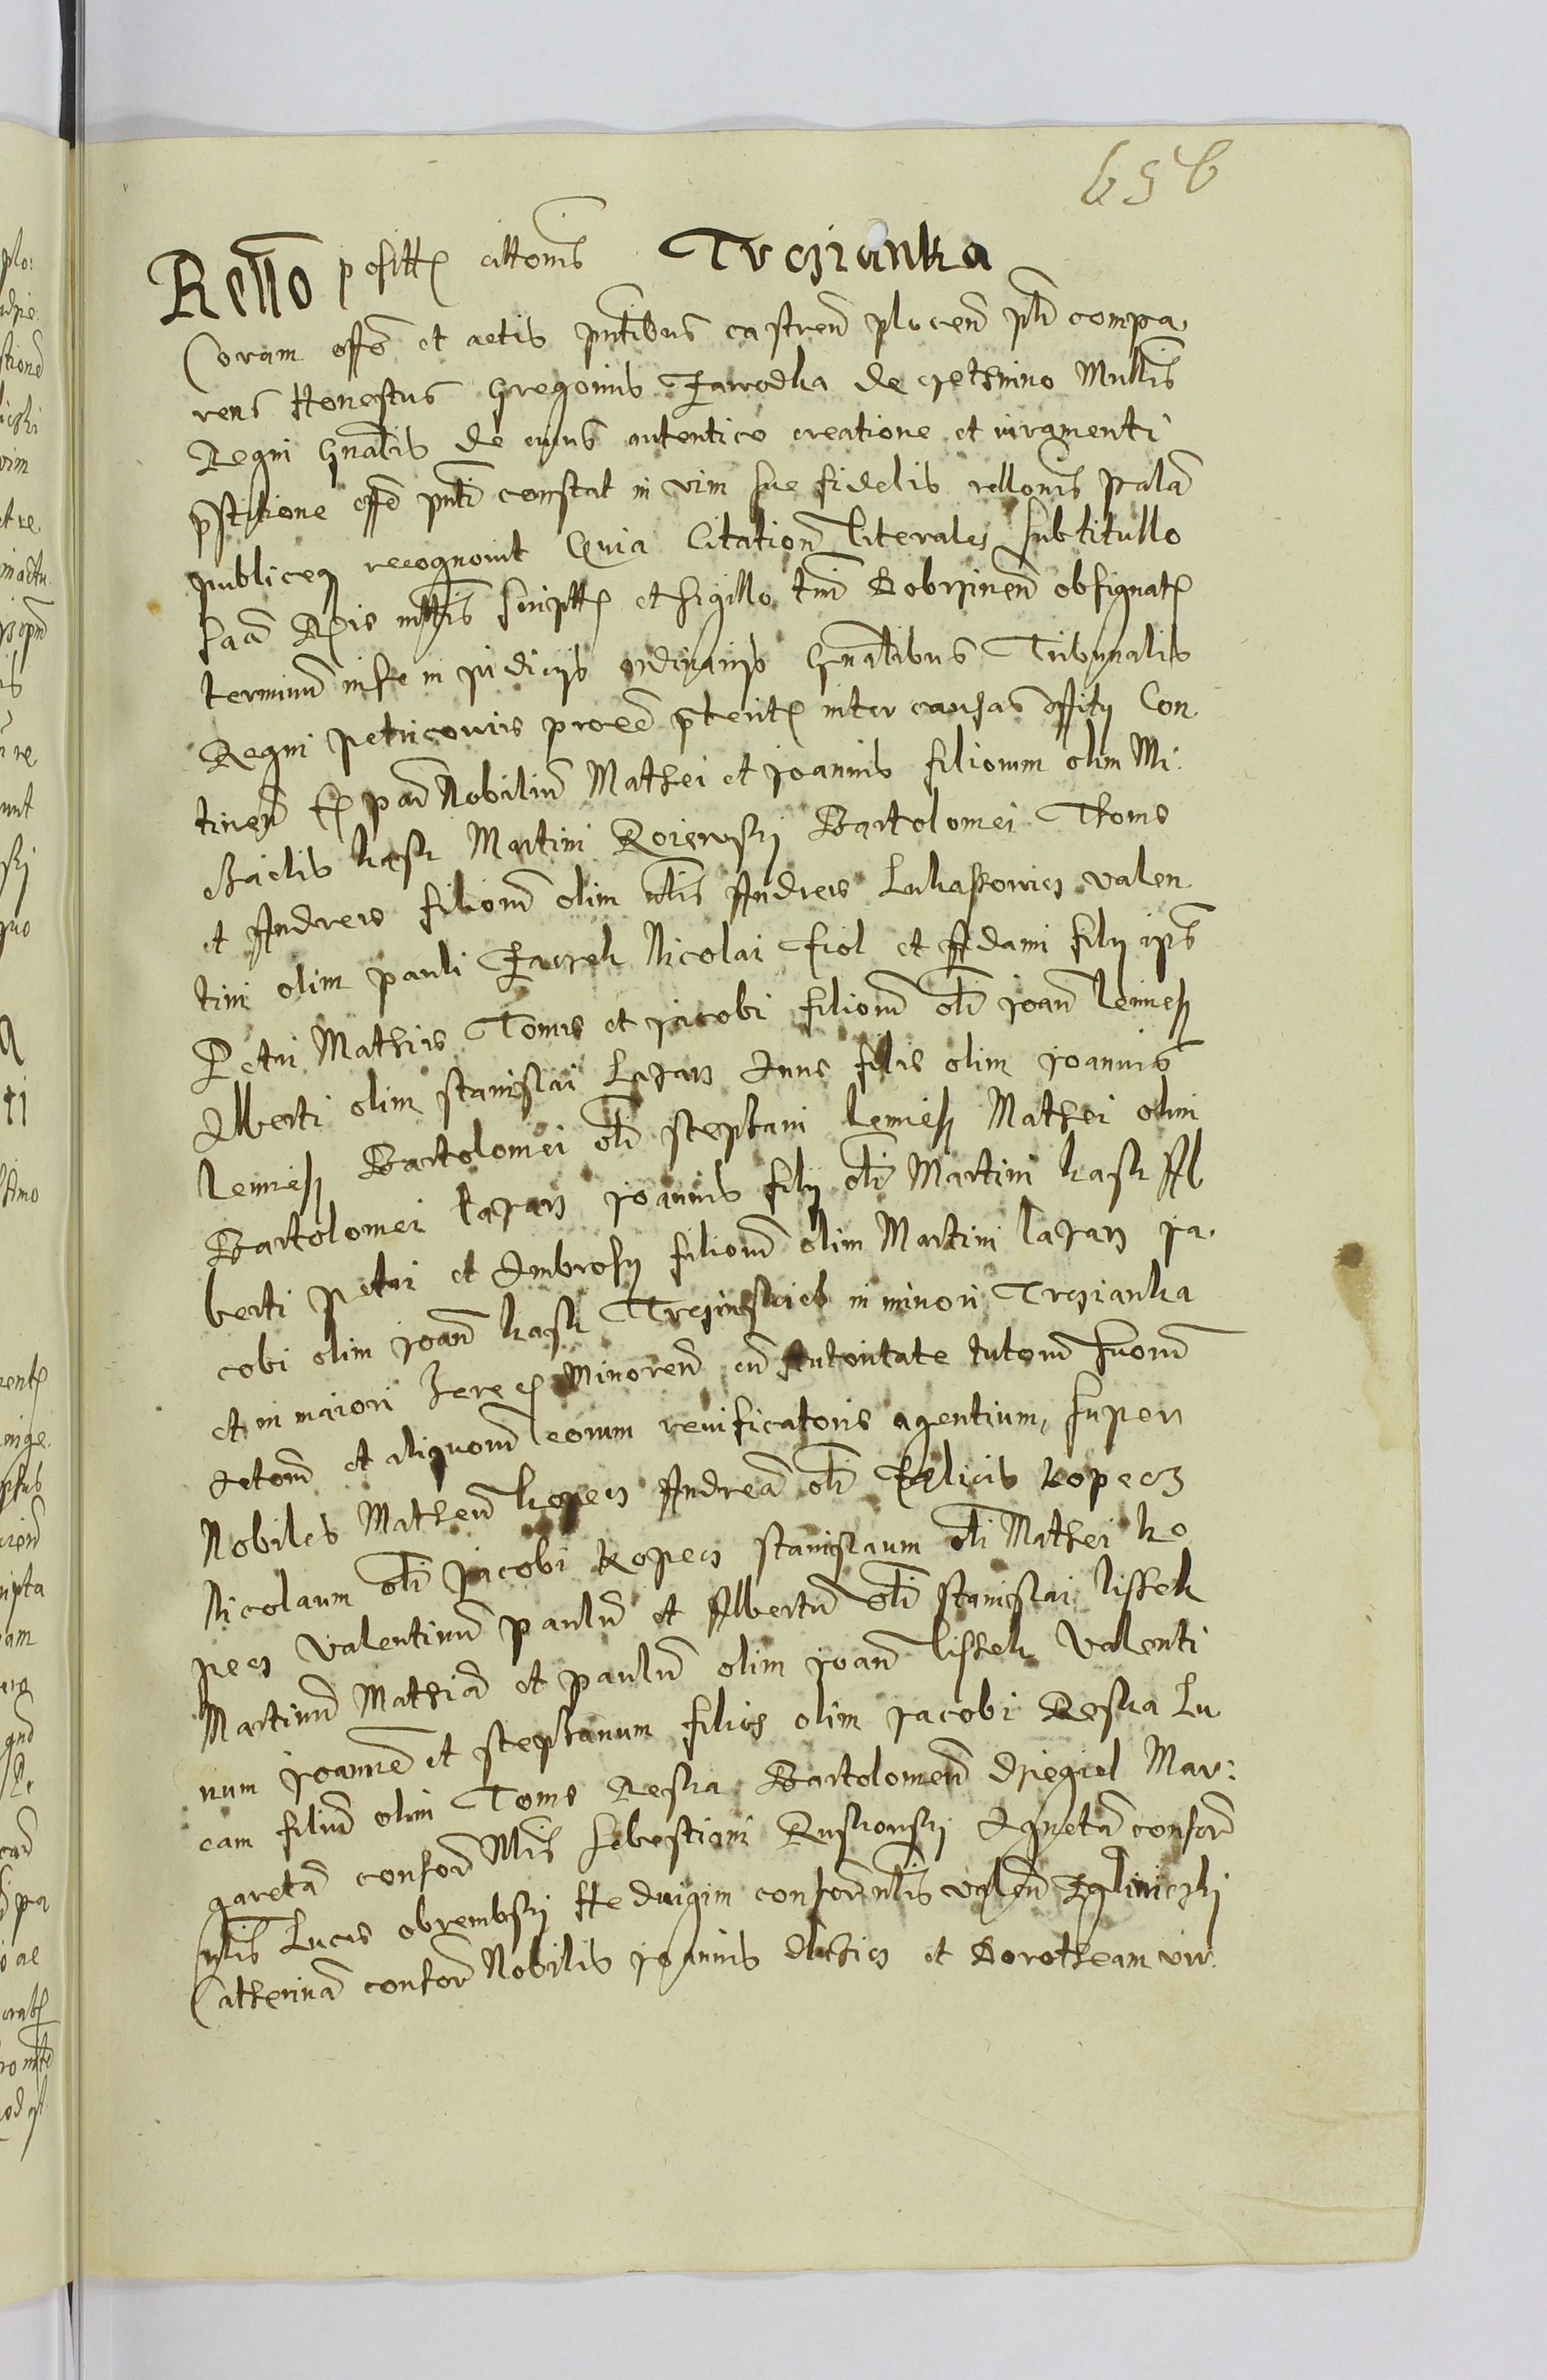 656
Rello positt cittonis Trzianka
Coram offo et actis pntibus castren plocen psl compa
rens Honestus Gregorius Jarodka de Czethnino Mnllis
Regni Gnalis de cuius autentico creatione et iuramenti
pstitione offo pnti constat in vim sue fidelis rellonis palā
publiceq recognovit Quia Citation literales sub titullo
Sacrā Rgis mttis scriptt et sigillo trm Dobrzinen obsignat
terminū infe in iudicijs ordinarijs Gnalibus Tribunalis
Regni petricouis proxe ptent inter causas offity Con
tinen Ex par Nobiliū Mathei et Joannis filiorum olim Mi
chaelis kask Martini Roiewski Bartolomei Thome
et Andreis filiorū olim nlis Andreis Lukassowicz valen
tini olim pauli Jaczek Nicolai Fiol et Adami filij ips
Petri Mathiis Tomis et jacobi filiorū oli joan lemiesz
Alberti olim stanislai Lajan Anne filie olim joannis
lemiesz Bartolomei oli stephani lemiesz Mathei olim
Bartolomei Lajan joannis filij oli Martini kask Al
berti petri et Ambrosij filiorū olim Martini lajan ja
cobi olim joan kask Trzinskich in minori Trzianka
et in maiori Minoren cū Autoritate tutorū suorū
Actorū et aliquorū eorum reuificatoris agentium, super
Nobiles Matheū kopecz Andreā oli Felicis kopecz
Nicolaum oli jacobi kopecz stanislaum oli Mathei ko
pecz valentinū paulū et Albertū oli stanislai lissek
Martinū Mathiā et paulū olim joan lissek valenti
num joannē et stephanum filios olim jacobi Reska Lu
cam filiū olim Tome Reska Bartolomeū Dziegiel Mar:
garetā consor Nlis sebestiani Ruskowski Agnetā consor
nlis Luces obrembski Heduigim consor nlis valen Zglinicki
Catherinā consor Nobilis joannis et Dorotheam vir